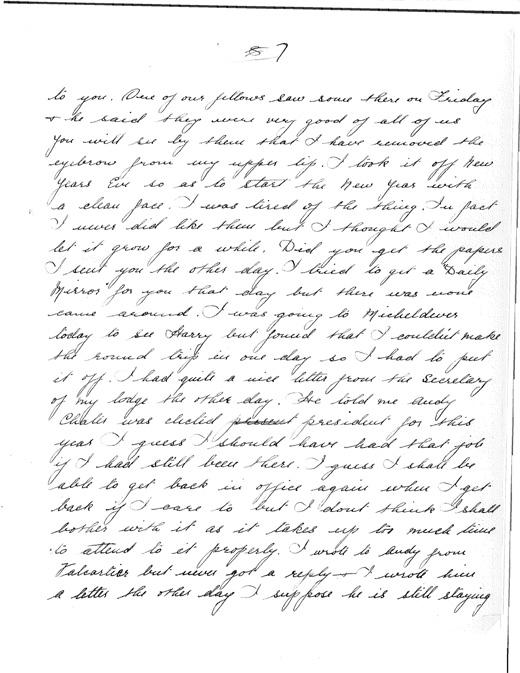 8 7
to you. One of our fellows saw some there on Friday
+ he said they were very good of all of us
you will see by them that I have removed the
eyebrow from my upper lip. I took it off New
Years Eve so as to start the New Year with
a clean face. I was tired of the thing. In fact
I never did like them but I thought I would
let it grow for a while. Did you get the papers
I sent you the other day. I tried to get a "Daily
Mirror" for you that day but there was none
came around. I was going to Micheldever
today to see Harry but found that I couldn't make
the round trip in one day so I had to put
it off. I had quite a nice letter from the Secretary
of my lodge the other day. He told me Andy
was elected present president for this
year I guess I should have had that job
if I had still been there. I guess I shall be
able to get back in office again when I get
back if I care to but I dont think I shall
bother with it as it takes up too much time
to attend to it properly. I wrote to Andy from
Valcartier but never got a reply + I wrote him
a letter the other day I suppose he is still staying